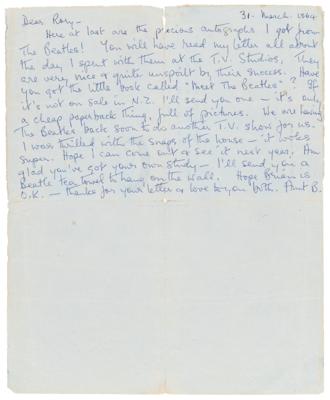 Dear Rory – 31. March. 1964
Here at last are the precious autographs I got from
The Beatles! You will have had my letter all about
the day I spent with them at the T.V. Studios. They
are very nice & quite unspoilt by their success. Have
you got the little book called "Meet The Beatles"? If
it's not on sale in N.Z. I'll send you one – it's only
a cheap paperback thing, full of pictures. We are having
The Beatles back soon to do another T.V. show for us.
I was thrilled with the snaps of the house – it looks
super. Hope I can come out & see it next year. Am
glad you've got your own study – I'll send you a
Beatle tea towel to hang on the wall. Hope Brian is
O.K. – thanks for your letter & love to you both. Aunt B.